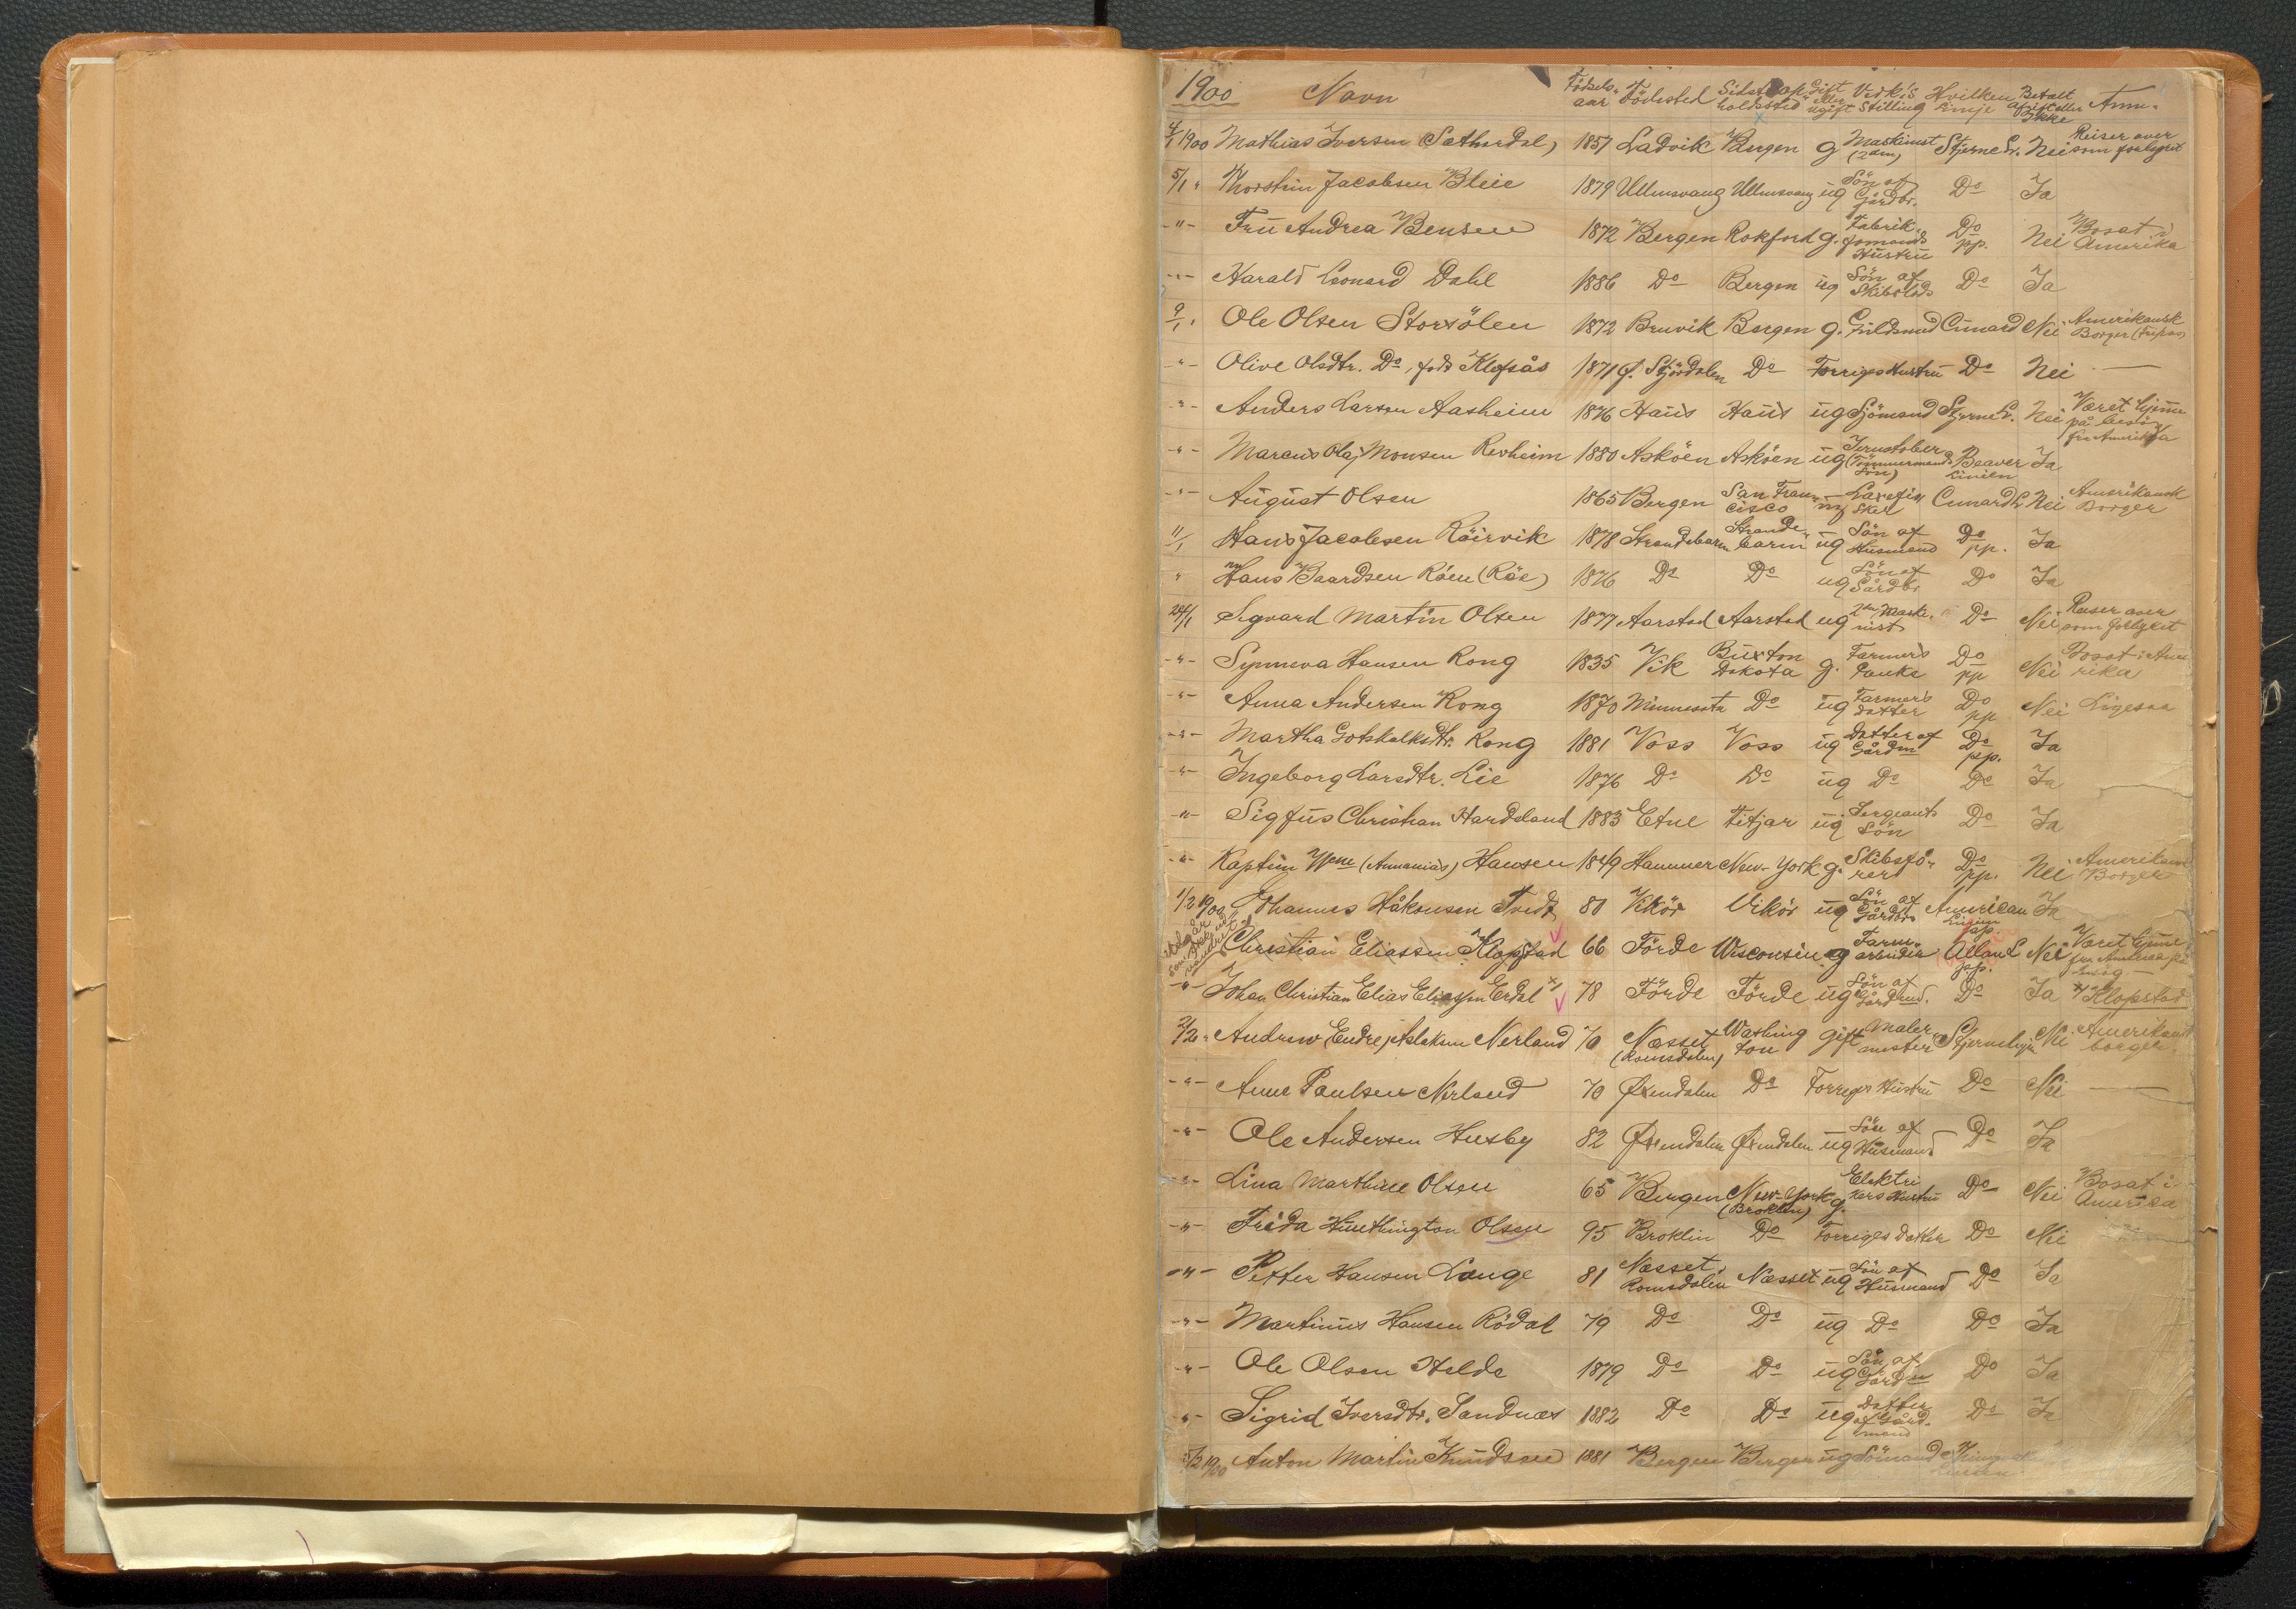 1900 Navn Födsels-aar Födested Sidste Opholdssted Gift eller ugift Vedk's Stilling Hvilken Linje Betalt afgift eller Ikke Anm.
4/1 1900 Mathias Iversen 1857 Ladvik Bergen g Maskinist (2den) Stjerne L. Nei Reiser over som forhyret
5/1 " Thorstein Jacobsen Bleie 1879 Ullensvang Ullensvang ug Sön af Gårdbr. Do Ja
-"- Frü Andrea Bensen 1872 Bergen Rokford g. Fabrik formands Hüstrü Do pp. Nei Bosat i Amerika
-"- Harald Leonard Dahl 1886 Do Bergen ug Sön af Do Ja
9/1 " Ole Olsen Storsölen 1872 Bruvik Bergen g. Güldsmed Cunard Nei Amerikansk Borger (Fripas)
-"- Olive Olsdtr. Do, föds Klofsås 1871 Ø. Stjördalen Do Forriges Hustrü Do Nei —
-"- Anders Larsen Aasheim 1876 Haüs Haüs ug Sjömand Stjerne L. Nei Været hjemme på besög fra Amerika
-"- Marcus Olaj Monsen Revheim 1880 Asköen Asköen ug Jernstöber (Tömmermands Sön) Beaver Linien Ja
-"- August Olsen 1865 Bergen San Francisco Laxefisker Cunard L Nei Amerikansk Borger
11/1 Hans Jacobsen Röirvik 1878 Strandebarm Strandebarm ug Sön af Husmand Do pp. Ja
" Hans Baardsen Röen (Röe) 1876 Do Do ug Sön af Gårdbr. Do Ja
24/1 Sigvard Martin Olsen 1877 Aarstad Aarstad ug 2den Maskinist Do Nei Reiser over som forhyret
-"- Synneva Hansen Rong 1835 Vik Büxton Dakota g. Farmer's Enke Do pp Nei Bosat i Amerika
-"- Anna Andersen Rong 1870 Minnesota Do ug Farmer's datter Do pp Nei Ligesaa
-"- Martha Gotskalksdtr. Rong 1881 Voss Voss ug Datter af Gårdm Do pp. Ja
-"- Ingeborg Larsdtr. Lie 1876 Do Do ug Do Do Ja
-"- Sigfüs Christian Hardeland 1883 Etne Fitjar ug Sergeants Sön Do Ja
-"- Kaptein Wm (Annanias) Hansen 1849 Hammer New-York g. Skibsförer Do pp. Nei Amerikansk Borger
1/2 1900 Johannes Håkonsen Tvedt 80 Vikör Vikör ug Sön af Gårdbr American Linien pp. Ja
Christian Eliassen Klopstad 66 Förde Wisconsin g Farm arbeider Allan L pp. Nei Været hjemme fra Amerika på besög
-"- Johan Christian Elias Eliassen Erdal x) 78 Förde Förde ug Sön af Gårdmd. Do Ja x) Klopstad
2/2 " Andrew (Endre) Aslaksen Nerland 70 Næsset (Romsdalen) Washington gift Malermester Stjernelinje Nei Amerikansk borger.
-"- Anne Paulsen Nerland 70 Øxendalen Do Forriges Hüstrü Do Nei —
-"- Ole Andersen Husby 82 Øxendalen Øxendalen ug Sön af Hüsmand Do Ja
-"- Lina Marthine Olsen 65 Bergen New-York (Broklin) g. Elektrikers Hustrü Do Nei Bosat i Amerika
-"- Frida Hünthington Olsen 95 Broklin Do Forriges datter Do Nei
-"- Petter Hansen Lange 81 Næsset, Romsdalen Næsset ug Sön af Hüsmand Do Ja
-"- Martinus Hansen Rödal 79 Do Do ug Do Do Ja
-"- Ole Olsen Helde 1879 Do Do ug Sön af Gårdm Do Ja
-"- Sigrid Iversdtr. Sandnæs 1882 Do Do ug Datter af Gårdmand Do Ja
5/2 1900 Anton Martin Knüdsen 1881 Bergen Bergen ug Sömand